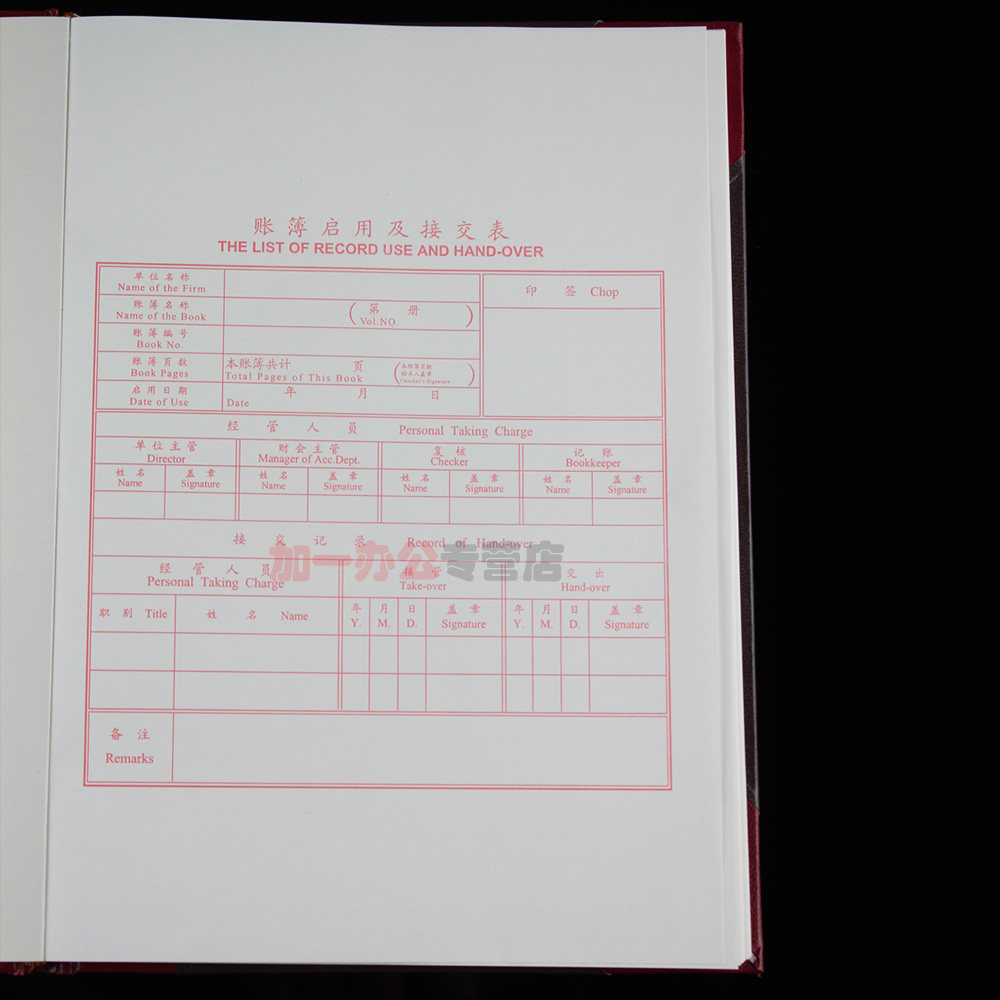 账簿启用及接交表
THE LIST OF RECORD USE AND HAND-OVER
单位名称
Name of the Firm
印 签 Chop
账簿名称
Name of the Book
(第 册)
Vol.NO.
账簿编号
Book No.
账簿页数
Book Pages
本账簿共计 页
Total Pages of This Book
本账簿页数
检点人盖章
Checker's Signature
启用日期
Date of Use
年 月 日
Date
经管人员 Personal Taking Charge
单位主管
Director
财会主管
Manager of Acc.Dept.
复核
Checker
记账
Bookkeeper
姓名 盖章 姓名 盖章 姓名 盖章 姓名 盖章
Name Signature Name Signature Name Signature Name Signature
接交记录 Record of Hand-over
加一办公专营店
经管人员
Personal Taking Charge
接管
Take-over
交出
Hand-over
职别 Title
姓名 Name
年 月 日 盖章 年 月 日 盖章
Y. M. D. Signature Y. M. D. Signature
备注
Remarks